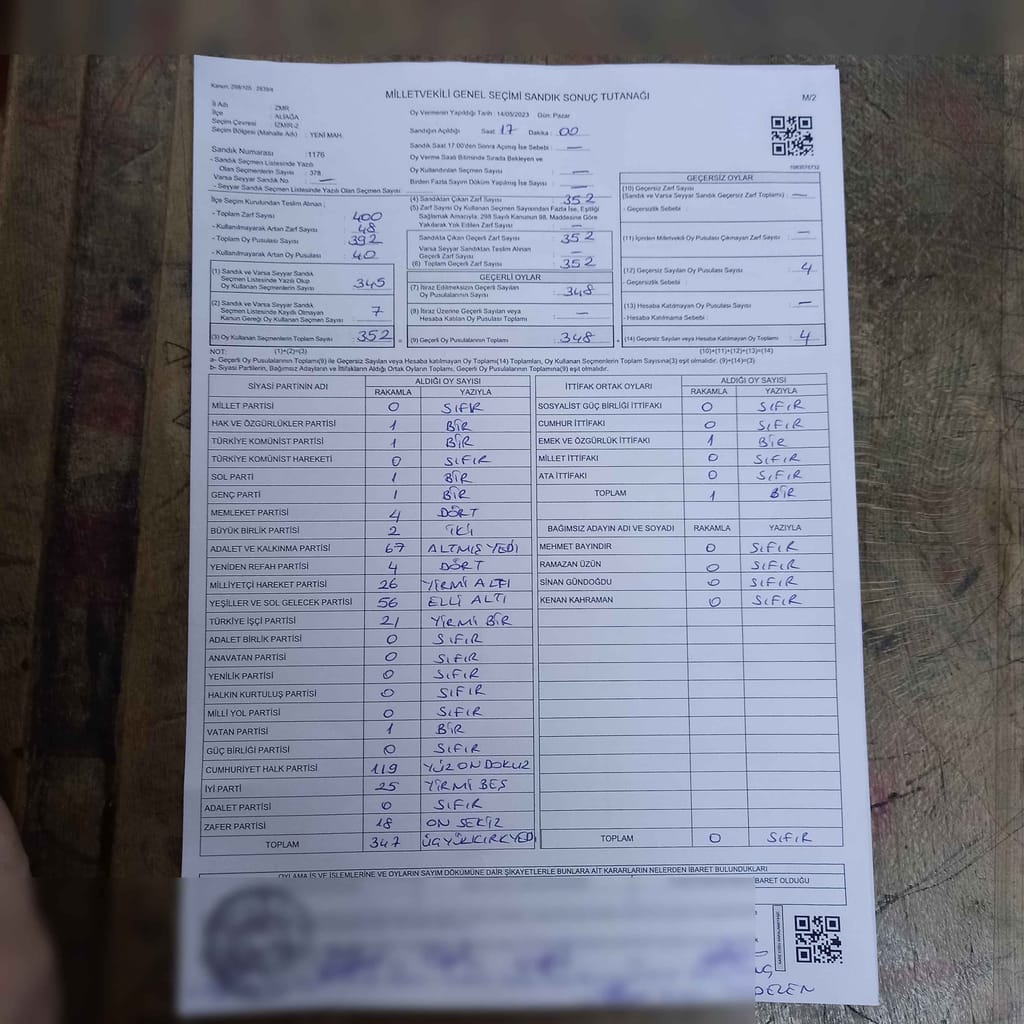 Kanun: 298/105 , 2839/4
MİLLETVEKİLİ GENEL SEÇİMİ SANDIK SONUÇ TUTANAĞI
M/2
İl Adı : ZMR
İlçe : ALİAĞA
Seçim Çevresi : İZMİR-2
Seçim Bölgesi (Mahalle Adı) : YENİ MAH.
Oy Vermenin Yapıldığı Tarih : 14/05/2023 Gün: Pazar
Sandığın Açıldığı Saat: 17 Dakika : 00
Sandık Saat 17:00'den Sonra Açılmış İse Sebebi : —
Oy Verme Saati Bitiminde Sırada Bekleyen ve
Oy Kullandırılan Seçmen Sayısı : —
Birden Fazla Sayım Döküm Yapılmış İse Sayısı : —
Sandık Numarası :1176
- Sandık Seçmen Listesinde Yazılı
Olan Seçmenlerin Sayısı : 378
Varsa Seyyar Sandık No. : —
- Seyyar Sandık Seçmen Listesinde Yazılı Olan Seçmen Sayısı :
İlçe Seçim Kurulundan Teslim Alınan ;
- Toplam Zarf Sayısı : 400
- Kullanılmayarak Artan Zarf Sayısı : 48
- Toplam Oy Pusulası Sayısı : 392
- Kullanılmayarak Artan Oy Pusulası : 40
(1) Sandık ve Varsa Seyyar Sandık
Seçmen Listesinde Yazılı Olup
Oy Kullanan Seçmenlerin Sayısı : 345
(2) Sandık ve Varsa Seyyar Sandık
Seçmen Listesinde Kayıtlı Olmayan
Kanun Gereği Oy Kullanan Seçmen Sayısı : 7
(3) Oy Kullanan Seçmenlerin Toplam Sayısı : 352
(4) Sandıktan Çıkan Zarf Sayısı : 352
(5) Zarf Sayısı Oy Kullanan Seçmen Sayısından Fazla İse, Eşitliği
Sağlamak Amacıyla, 298 Sayılı Kanunun 98. Maddesine Göre
Yakılarak Yok Edilen Zarf Sayısı : —
Sandıkta Çıkan Geçerli Zarf Sayısı : 352
Varsa Seyyar Sandıktan Teslim Alınan
Geçerli Zarf Sayısı : —
(6) Toplam Geçerli Zarf Sayısı : 352
GEÇERLİ OYLAR
(7) İtiraz Edilmeksizin Geçerli Sayılan
Oy Pusulalarının Sayısı : 348
(8) İtiraz Üzerine Geçerli Sayılan veya
Hesaba Katılan Oy Pusulası Toplamı : —
(9) Geçerli Oy Pusulalarının Toplamı : 348
GEÇERSİZ OYLAR
(10) Geçersiz Zarf Sayısı
(Sandık ve Varsa Seyyar Sandık Geçersiz Zarf Toplamı) : —
- Geçersizlik Sebebi :
(11) İçinden Milletvekili Oy Pusulası Çıkmayan Zarf Sayısı : —
(12) Geçersiz Sayılan Oy Pusulası Sayısı : 4
- Geçersizlik Sebebi :
(13) Hesaba Katılmayan Oy Pusulası Sayısı : —
- Hesaba Katılmama Sebebi :
(14) Geçersiz Sayılan veya Hesaba Katılmayan Oy Toplamı : 4
NOT: (1)+(2)=(3) (10)+(11)+(12)+(13)=(14)
a- Geçerli Oy Pusulalarının Toplamı(9) ile Geçersiz Sayılan veya Hesaba katılmayan Oy Toplam(14) Toplamları, Oy Kullanan Seçmenlerin Toplam Sayısına(3) eşit olmalıdır. (9)+(14)=(3)
b- Siyasi Partilerin, Bağımsız Adayların ve İttifakların Aldığı Ortak Oyların Toplamı, Geçerli Oy Pusulalarının Toplamına(9) eşit olmalıdır.
SİYASİ PARTİNİN ADI ALDIĞI OY SAYISI
RAKAMLA YAZIYLA
MİLLET PARTİSİ 0 SIFIR
HAK VE ÖZGÜRLÜKLER PARTİSİ 1 BİR
TÜRKİYE KOMÜNİST PARTİSİ 1 BİR
TÜRKİYE KOMÜNİST HAREKETİ 0 SIFIR
SOL PARTİ 1 BİR
GENÇ PARTİ 1 BİR
MEMLEKET PARTİSİ 4 DÖRT
BÜYÜK BİRLİK PARTİSİ 2 İKİ
ADALET VE KALKINMA PARTİSİ 67 ALTMIŞ YEDİ
YENİDEN REFAH PARTİSİ 4 DÖRT
MİLLİYETÇİ HAREKET PARTİSİ 26 YİRMİ ALTI
YEŞİLLER VE SOL GELECEK PARTİSİ 56 ELLİ ALTI
TÜRKİYE İŞÇİ PARTİSİ 21 YİRMİ BİR
ADALET BİRLİK PARTİSİ 0 SIFIR
ANAVATAN PARTİSİ 0 SIFIR
YENİLİK PARTİSİ 0 SIFIR
HALKIN KURTULUŞ PARTİSİ 0 SIFIR
MİLLİ YOL PARTİSİ 0 SIFIR
VATAN PARTİSİ 1 BİR
GÜÇ BİRLİĞİ PARTİSİ 0 SIFIR
CUMHURİYET HALK PARTİSİ 119 YÜZ ON DOKUZ
İYİ PARTİ 25 YİRMİ BEŞ
ADALET PARTİSİ 0 SIFIR
ZAFER PARTİSİ 18 ON SEKİZ
TOPLAM 347 ÜÇYÜZKIRKYEDİ
İTTİFAK ORTAK OYLARI ALDIĞI OY SAYISI
RAKAMLA YAZIYLA
SOSYALİST GÜÇ BİRLİĞİ İTTİFAKI 0 SIFIR
CUMHUR İTTİFAKI 0 SIFIR
EMEK VE ÖZGÜRLÜK İTTİFAKI 1 BİR
MİLLET İTTİFAKI 0 SIFIR
ATA İTTİFAKI 0 SIFIR
TOPLAM 1 BİR
BAĞIMSIZ ADAYIN ADI VE SOYADI RAKAMLA YAZIYLA
MEHMET BAYINDIR 0 SIFIR
RAMAZAN ÜZÜN 0 SIFIR
SİNAN GÜNDOĞDU 0 SIFIR
KENAN KAHRAMAN 0 SIFIR
TOPLAM 0 SIFIR
OYLAMA İŞ VE İŞLEMLERİNE VE OYLARIN SAYIM DÖKÜMÜNE DAİR ŞİKAYETLERLE BUNLARA AİT KARARLARIN NELERDEN İBARET BULUNDUKLARI
BARET OLDUĞU